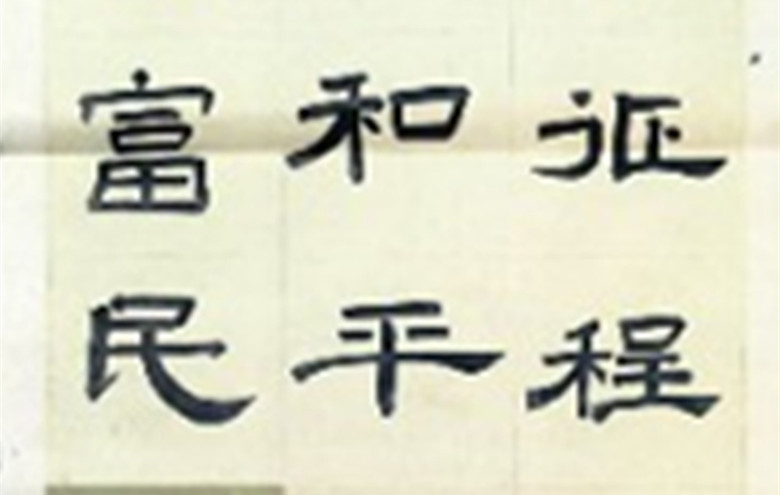 征程
和平
富民